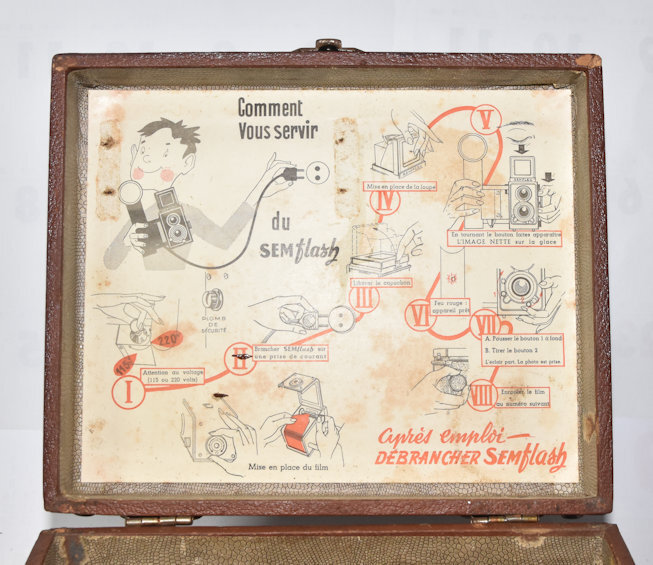 Comment
Vous servir
du
SEMflash
PLOMB
DE
SÉCURITÉ
110v
220v
I
Attention au voltage
(115 ou 220 volts)
II
Brancher SEMflash sur
une prise de courant
III
Libérer le capuchon
IV
Mise en place de la loupe
V
SEMFLEX
En tournant le bouton faites apparaître
L'IMAGE NETTE sur la glace
VI
Feu rouge :
appareil prêt
VII
A. Pousser le bouton 1 à fond
B. Tirer le bouton 2
L'éclair part. La photo est prise
VIII
Enrouler le film
au numéro suivant
Mise en place du film
après emploi—
DÉBRANCHER SEMflash